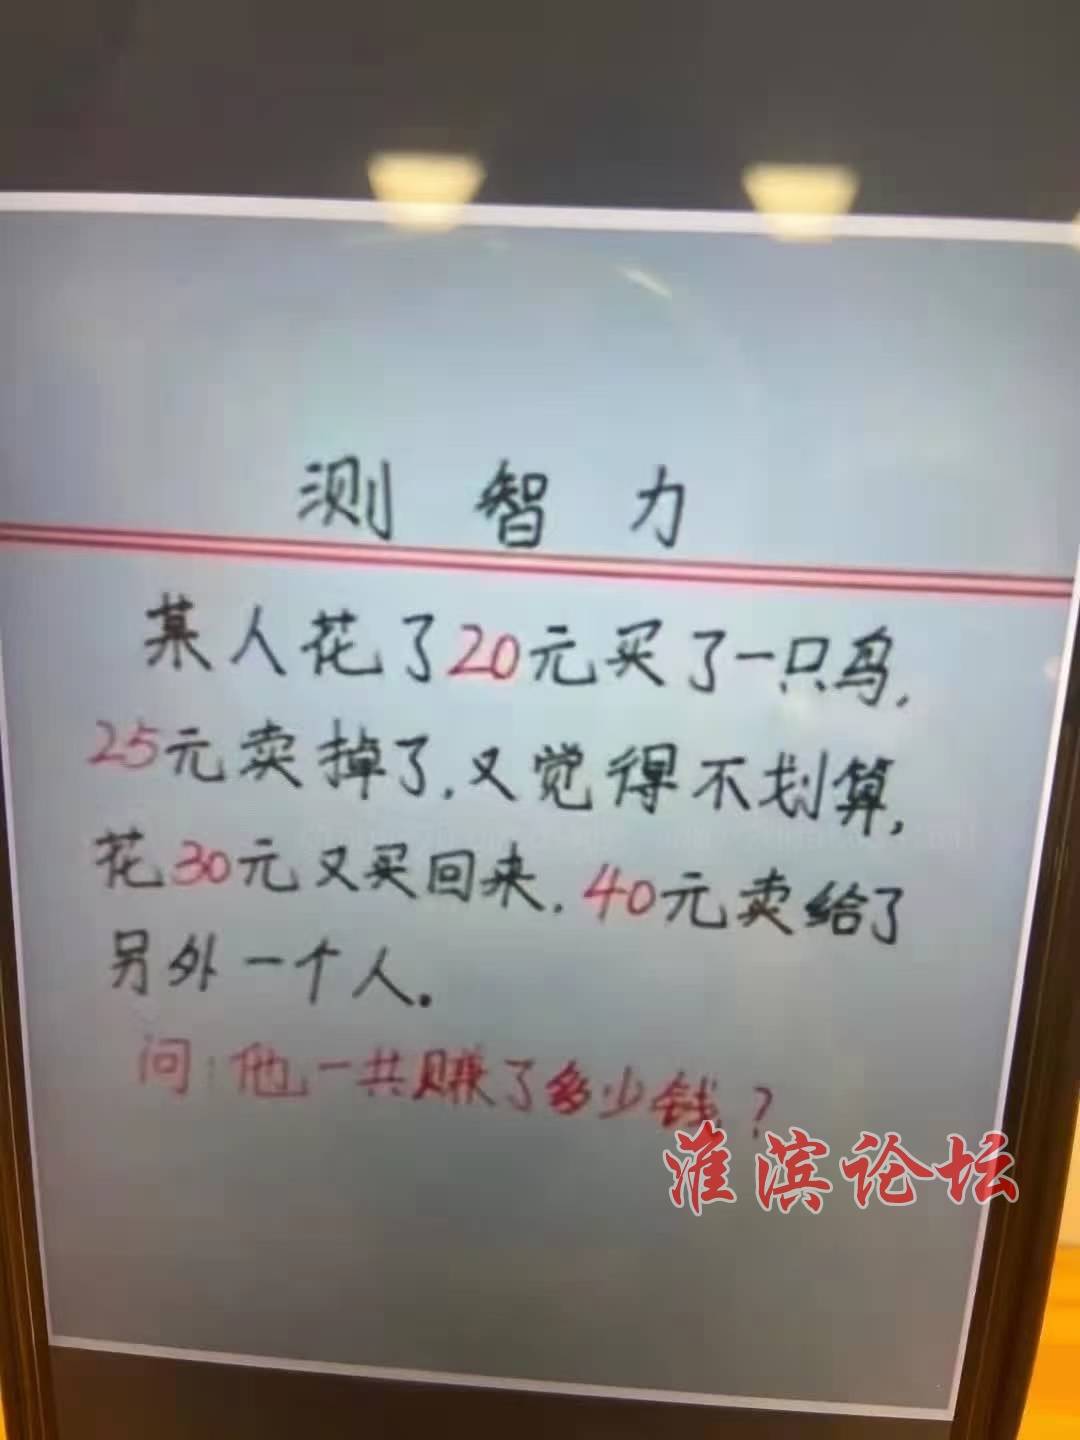 测智力
某人花了20元买了一只鸟,
25元卖掉了,又觉得不划算,
花30元又买回来,40元卖给了
另外一个人。
问:他一共赚了多少钱?
淮滨论坛